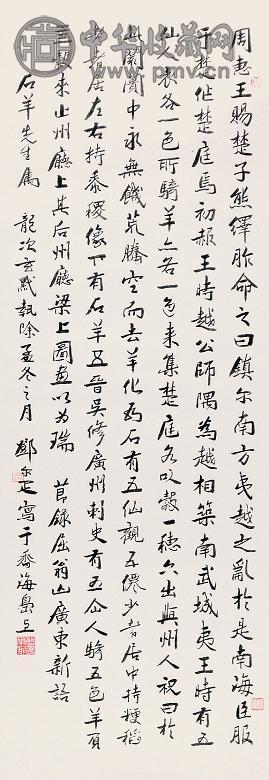 中华收藏网
www.pmv.cn
周惠王賜楚子熊繹胙命之曰鎮尔南方夷越之亂於是南海臣服
于楚作楚庭焉初赧王時越公師隅為越相築南武城夷王時有五
仙人衣各一色所騎羊亦各一色來集楚庭各以穀一穗六出與州人祝曰於
此闤闠中永無饑荒騰空而去羊化為石有五仙觀五僊少者居中持粳稻
老者居左右持黍稷像下有石羊五晉吳修廣州刺史有五仙人騎五色羊負
五穀來止州廳上其后州廳梁上圖畫以為瑞 節錄屈翁山廣東新語
石羊先生属 龍次玄黓執除孟冬之月 鄧尔疋寫于香海島上